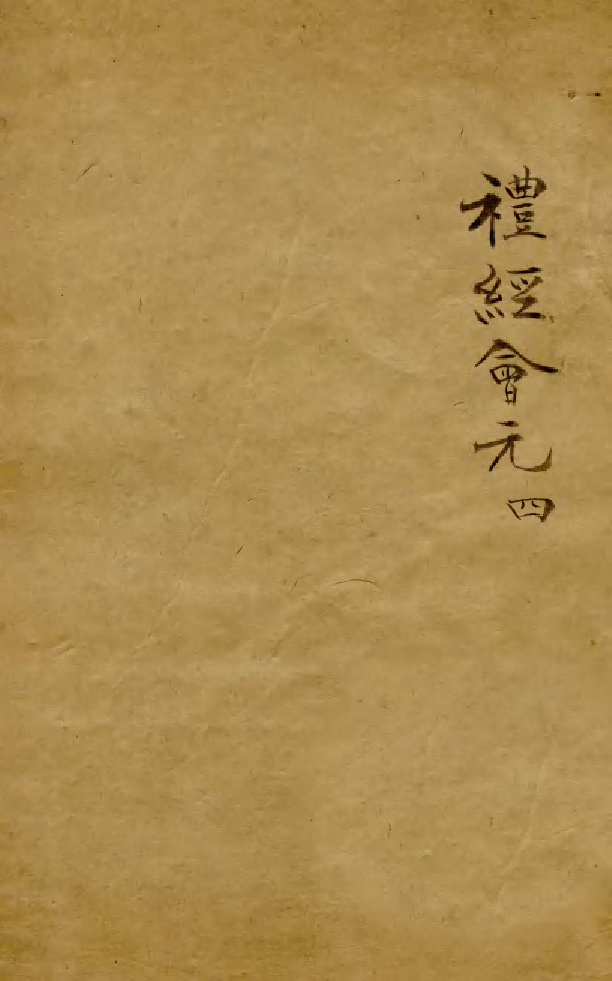 禮經會元四